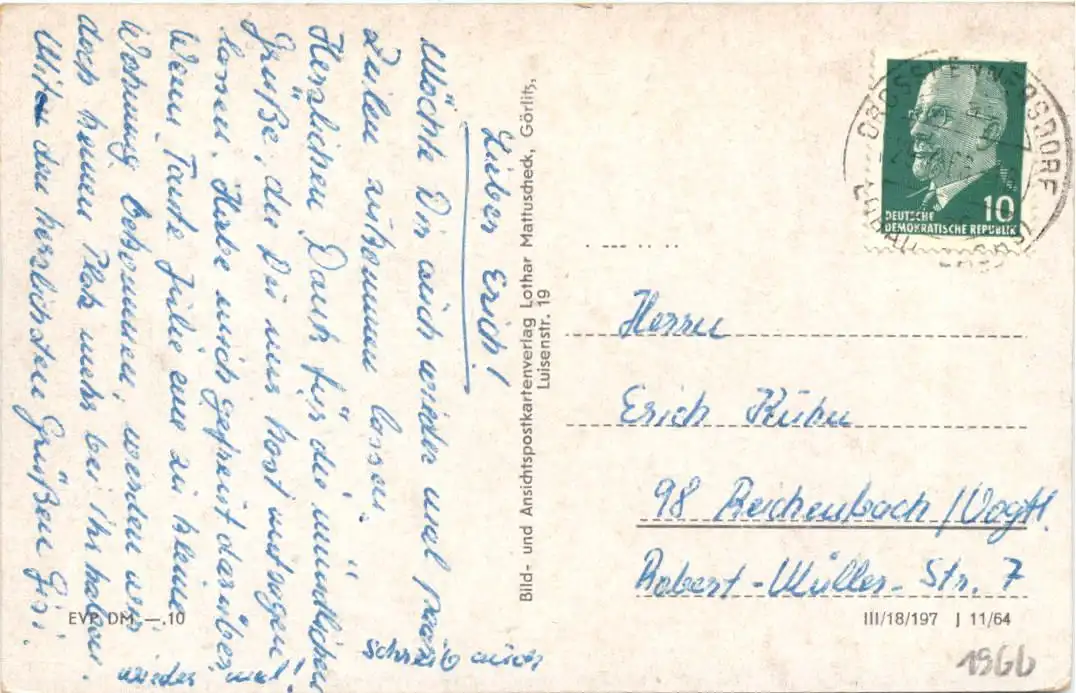 Lieber Erich!
Möchte Dir auch wieder mal paar
Zeilen zukommen lassen.
Herzlichen Dank für die mündlichen
Grüße, die Du uns hast sagen
lassen. Habe mich gefreut darüber
Wenn Tante Julie eine zu kleine
Wohnung bekommen, werden wir
doch keinen Platz mehr bei Ihr haben.
Mit den herzlichsten Grüßen
schreib auch
wieder mal!
Bild- und Ansichtspostkartenverlag Lothar Mattuscheck, Görlitz,
Luisenstr. 19
GROSSHENNERSDORF
10
DEUTSCHE
DEMOKRATISCHE REPUBLIK
Herrn
Erich Kühn
98 Reichenbach /Vogtl.
Robert-Müller-Str. 7
EVP DM —.10
III/18/197 J 11/64
1966